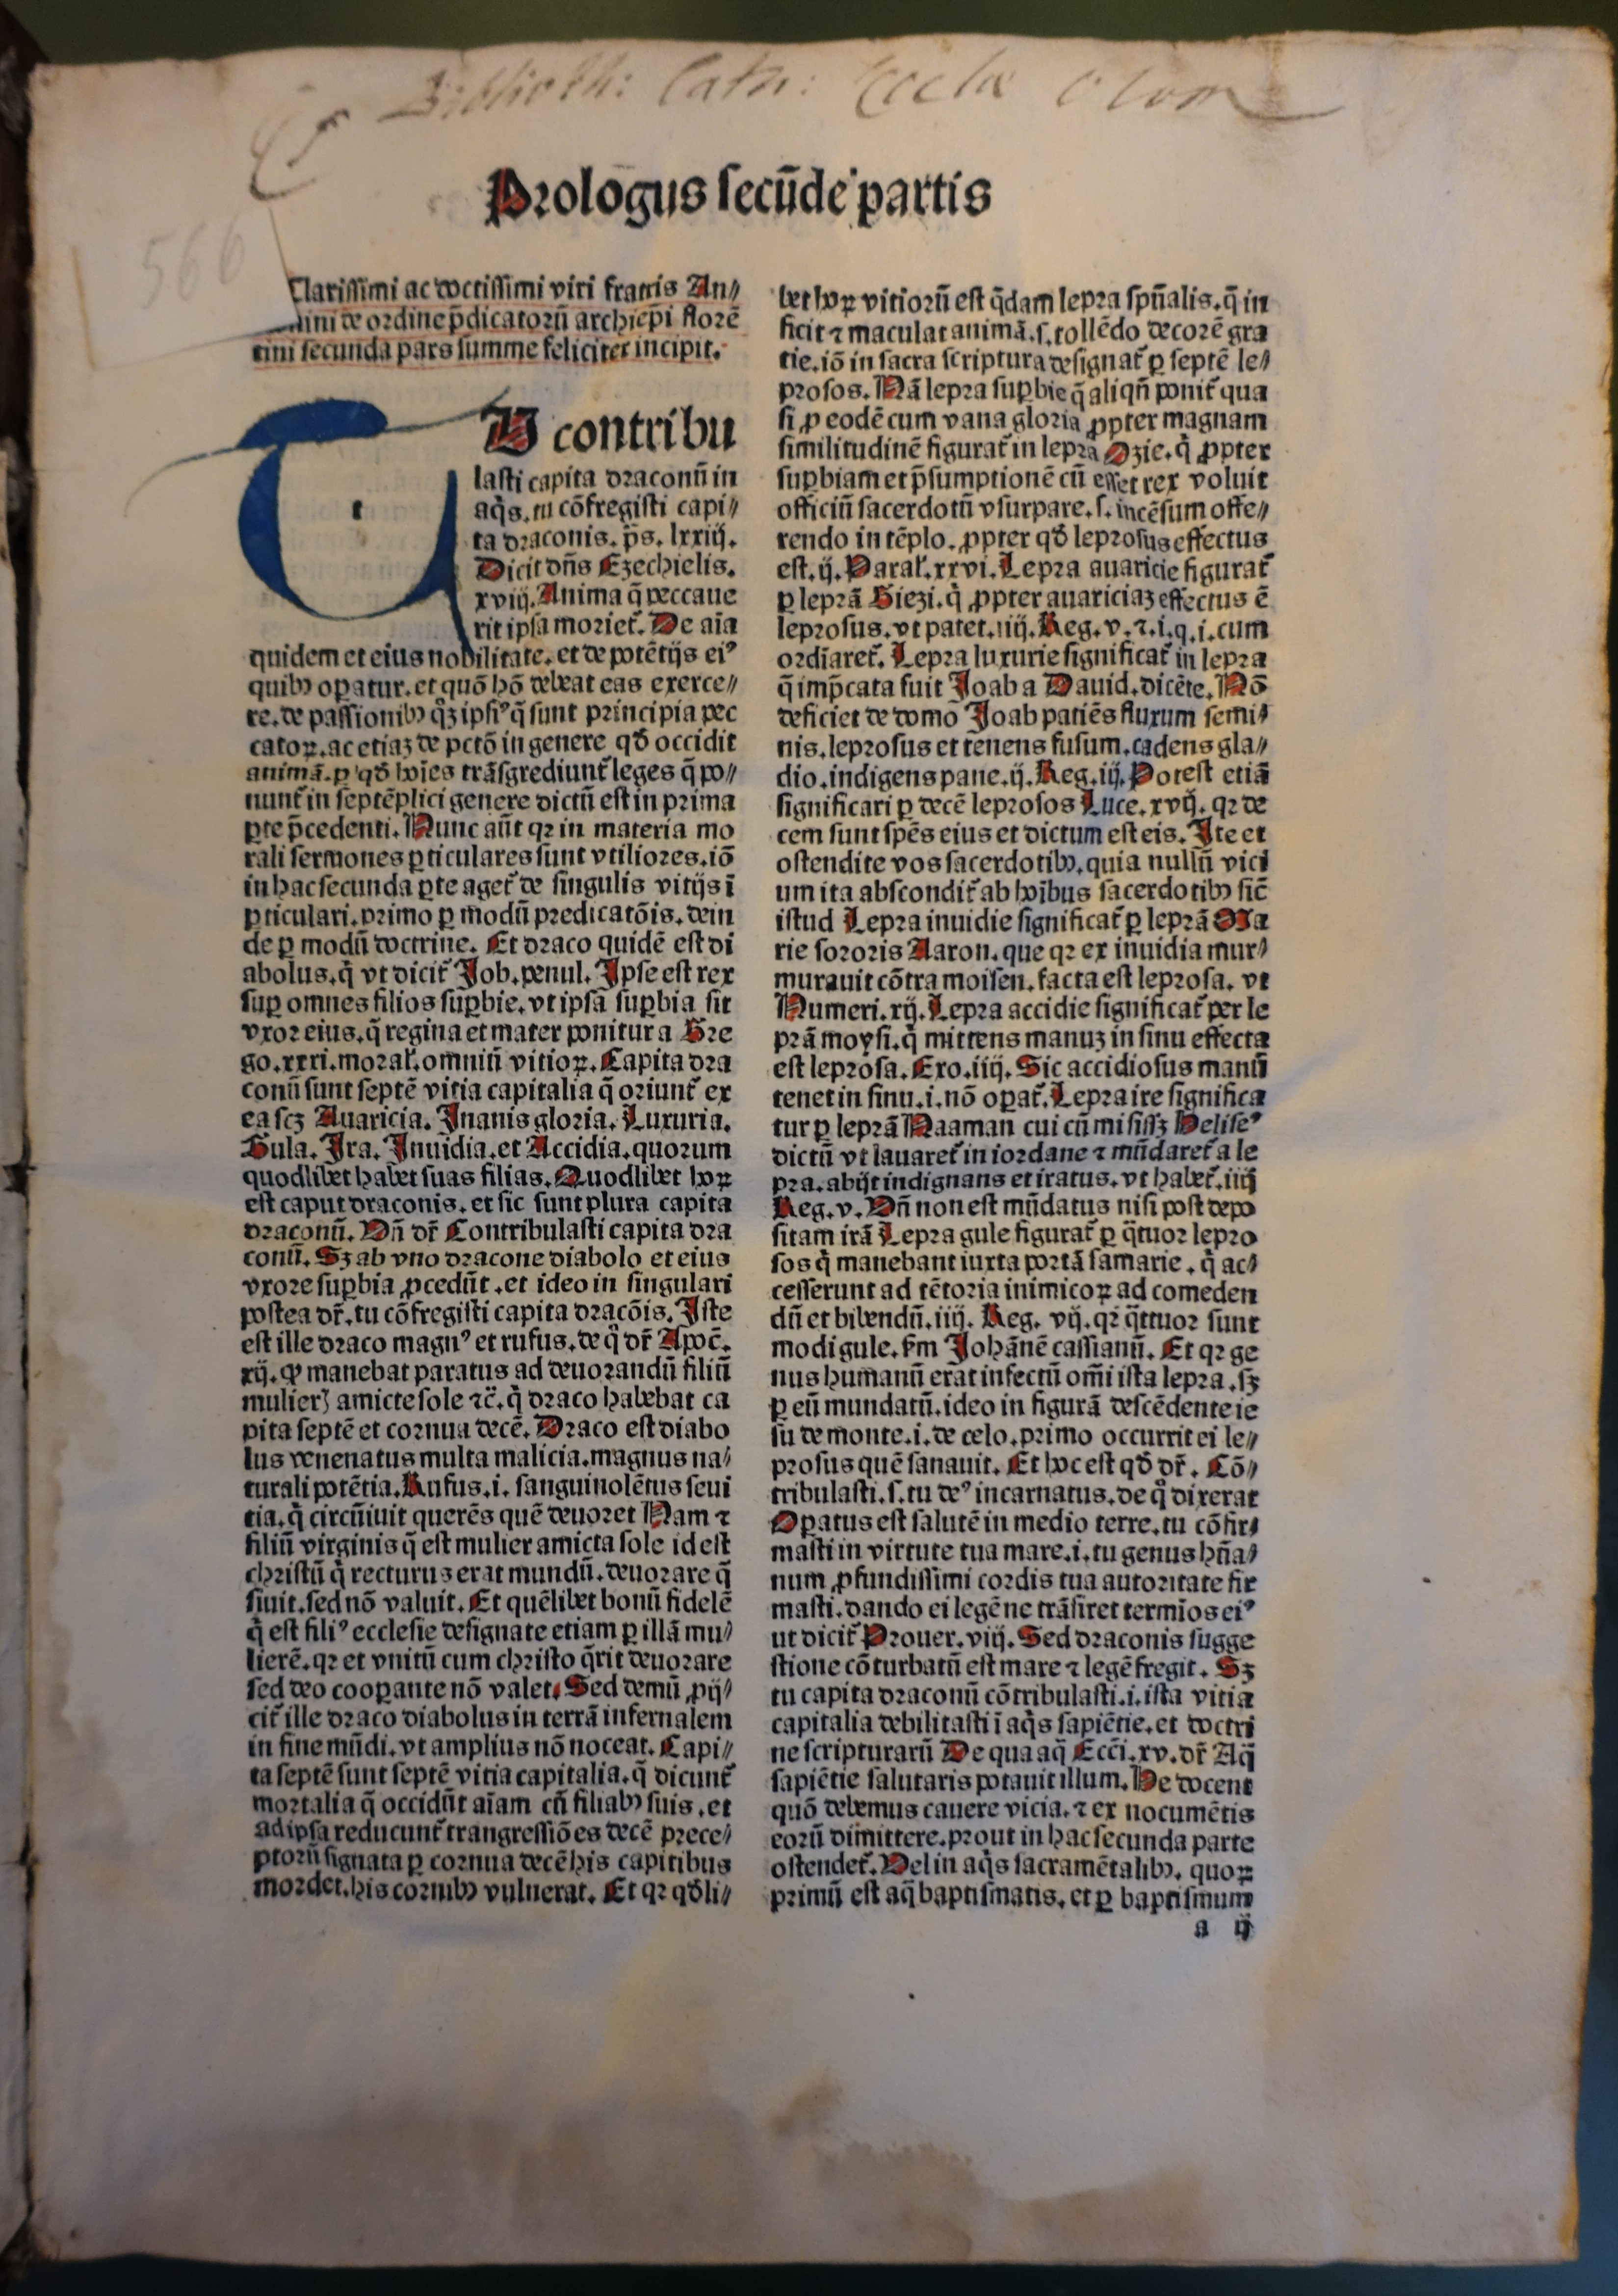 Biblioth: Cath: Eccle Olom
566
Prologus secūde partis
Clarissimi ac doctissimi viri fratris An//
nini de ordine p̄dicatorū archiep̄i florē
tini secunda pars summe feliciter incipit.
U contribu
t
lasti capita draconū in
aq̄s. tu cōfregisti capi//
ta draconis. p̄s. lxxiij.
Dicit dn̄s Ezechielis.
xviij. Anima q̄ peccaue
rit ipsa moriet᷑. De aīa
quidem et eius nobilitate. et de potētijs eiꝰ
quibꝫ oꝑatur. et quō hō debeat eas exerce//
re. de passionibꝫ qͦꝫ ipsiꝰ q̄ sunt principia pec
catoꝝ. ac etiaꝫ de pctō in genere qđ occidit
animā. ꝑ qđ hoīes trāsgrediunt᷑ leges q̄ po//
nunt᷑ in septēplici genere dictū est in prima
ꝑte p̄cedenti. Nunc aūt qꝛ in materia mo
rali sermones ꝑticulares sunt vtiliores. iō
in hac secunda ꝑte aget᷑ de singulis vitijs ī
ꝑticulari. primo ꝑ modū predicatōis. dein
de ꝑ modū doctrine. Et draco quidē est di
abolus. q̄ vt dicit᷑ Job. penul. Ipse est rex
suꝑ omnes filios suꝑbie. vt ipsa suꝑbia sit
vxor eius. q̄ regina et mater ponitur a Gre
go. xxxi. moral̓. omniū vitioꝝ. Capita dra
conū sunt septē vitia capitalia q̄ oriunt᷑ ex
ea scꝫ Auaricia. Inanis gloria. Luxuria.
Gula. Ira. Inuidia. et Accidia. quorum
quodlibet habet suas filias. Quodlibet hoꝝ
est caput draconis. et sic sunt plura capita
draconū. Dn̄ dr̄ Contribulasti capita dra
conū. Sꝫ ab vno dracone diabolo et eius
vxore suꝑbia ꝓcedūt. et ideo in singulari
postea dr̄. tu cōfregisti capita dracōis. Iste
est ille draco magnꝰ et rufus. de qͦ dr̄ Apoc̄.
xij. ꝙ manebat paratus ad deuorandū filiū
mulierꝭ amicte sole ⁊c̄. q̄ draco habebat ca
pita septē et cornua decē. Draco est diabo
lus venenatus multa malicia. magnus na//
turali potētia. Rufus. i. sanguinolētus seui
tia. q̄ circūiuit querēs quē deuoret Nam ⁊
filiū virginis q̄ est mulier amicta sole id est
christū q̄ recturus erat mundū. deuorare q̄
siuit. sed nō valuit. Et quēlibet bonū fidelē
q̄ est filiꝰ ecclesie designate etiam ꝑ illā mu//
lierē. qꝛ et vnitū cum christo q̄rit deuorare
sed deo cooꝑante nō valet. Sed demū ꝓij//
cit᷑ ille draco diabolus in terrā infernalem
in fine mūdi. vt amplius nō noceat. Capi//
ta septē sunt septē vitia capitalia. q̄ dicunt᷑
mortalia q̄ occidūt aīam cū filiabꝫ suis. et
ad ipsa reducunt᷑ trangressiōes decē prece//
ptorū signata ꝑ cornua decē his capitibus
mordet. his cornibꝫ vulnerat. Et qꝛ qđli//
bet hoꝝ vitiorū est q̄dam lepra spūalis. q̄ in
ficit ⁊ maculat animā. s. tollēdo decorē gra
tie. iō in sacra scriptura designat᷑ ꝑ septē le//
prosos. Nā lepra suꝑbie q̄ aliqn̄ ponit᷑ qua
si ꝓ eodē cum vana gloria ꝓpter magnam
similitudinē figurat᷑ in lepra Ozie. q̄ ꝓpter
suꝑbiam et p̄sumptionē cū esset rex voluit
officiū sacerdotū vsurpare. s. incēsum offe//
rendo in tēplo. ꝓpter qđ leprosus effectus
est. ij. Paral̓. xxvi. Lepra auaricie figurat᷑
ꝑ leprā Giezi. q̄ ꝓpter auariciaꝫ effectus ē
leprosus. vt patet. iiij. Reg. v. ⁊. i. q. i. cum
ordīaret᷑. Lepra luxurie significat᷑ in lepra
q̄ imp̄cata fuit Joab a Dauid. dicēte. Nō
deficiet de domo Joab patiēs fluxum semi//
nis. leprosus et tenens fusum. cadens gla//
dio. indigens pane. ij. Reg. iij. Potest etiā
significari ꝑ decē leprosos Luce. xvij. qꝛ de
cem sunt spēs eius et dictum est eis. Ite et
ostendite vos sacerdotibꝫ. quia nullū vici
um ita abscondit᷑ ab hoībus sacerdotibꝫ sic̄
istud Lepra inuidie significat᷑ ꝑ leprā Ma
rie sororis Aaron. que qꝛ ex inuidia mur//
murauit cōtra moisen. facta est leprosa. vt
Numeri. xij. Lepra accidie significat᷑ per le
prā moysi. q̄ mittens manuꝫ in sinu effecta
est leprosa. Exo. iiij. Sic accidiosus manū
tenet in sinu. i. nō oꝑat᷑. Lepra ire significa
tur ꝑ leprā Naaman cui cū misissꝫ Heliseꝰ
dictū vt lauaret᷑ in iordane ⁊ mūdaret᷑ a le
pra. abijt indignans et iratus. vt habet᷑. iiij
Reg. v. Dn̄ non est mūdatus nisi post depo
sitam irā Lepra gule figurat᷑ ꝑ q̄tuor lepro
sos q̄ manebant iuxta portā samarie. q̄ ac//
cesserunt ad tētoria inimicoꝝ ad comeden
dū et bibendū. iiij. Reg. vij. qꝛ q̄ttuor sunt
modi gule. ẜm Johānē cassianū. Et qꝛ ge
nus humanū erat infectū om̄i ista lepra. sꝫ
ꝑ eū mundatū. ideo in figurā descēdente ie
su de monte. i. de celo. primo occurrit ei le//
prosus quē sanauit. Et hoc est qđ dr̄. Cō//
tribulasti. s. tu deꝰ incarnatus. de qͦ dixerat
Oꝑatus est salutē in medio terre. tu cōfir//
masti in virtute tua mare. i. tu genus hūa//
num ꝓfundissimi cordis tua autoritate fir
masti. dando ei legē ne trāsiret termīos eiꝰ
ut dicit᷑ Prouer. viij. Sed draconis sugge
stione cōturbatū est mare ⁊ legē fregit. Sꝫ
tu capita draconū cōtribulasti. i. ista vitia
capitalia debilitasti ī aq̄s sapiētie. et doctri
ne scripturarū De qua aq̄ Ecc̄i. xv. dr̄ Aq̄
sapiētie salutaris potauit illum. He docent
quō debemus cauere vicia. ⁊ ex nocumētis
eorū dimittere. prout in hac secunda parte
ostendet᷑. Vel in aq̄s sacramētalibꝫ. quoꝝ
primū est aq̄ baptismatis. et ꝑ baptismum
a ij